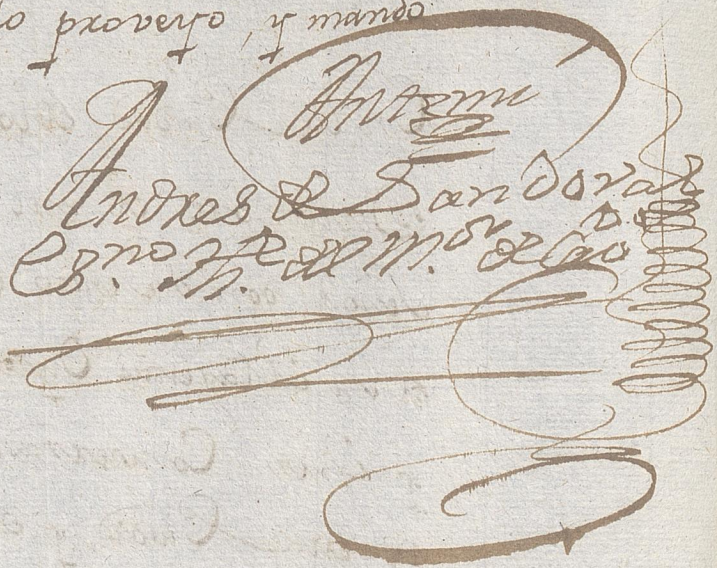 lo proveyo, y mando
Antemi
Andres de Sandoval
Es.no Th.e del M.or de Gro